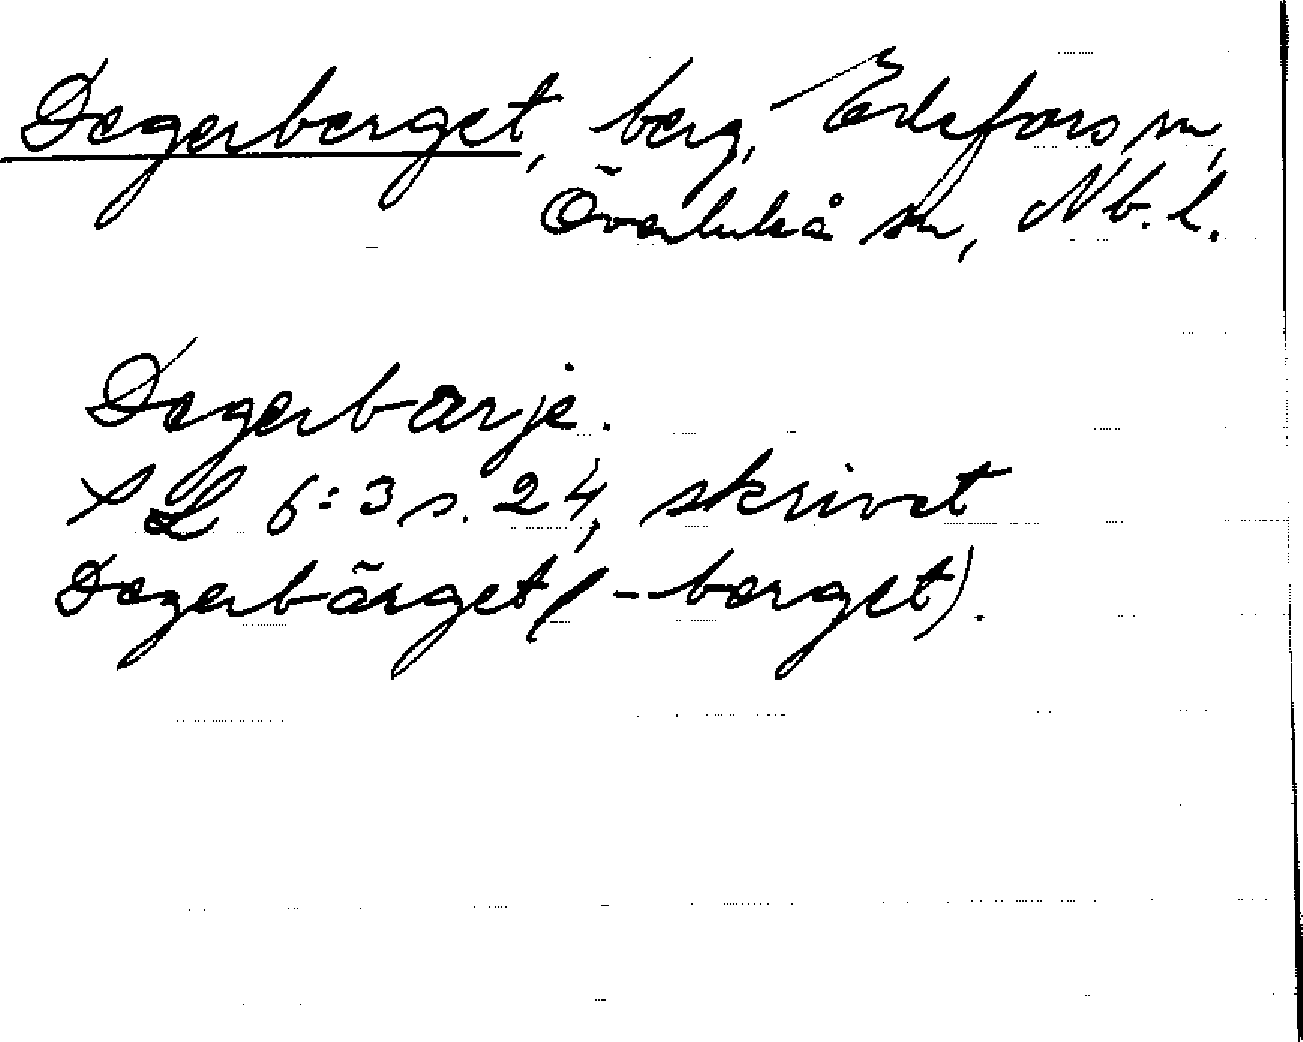 Degerberget, berg, Edefors sn,
Överluleå sn, Nb. l.
Degerbärje.
SL 6:3 s. 24, skrivet
Degerbärget (-berget).